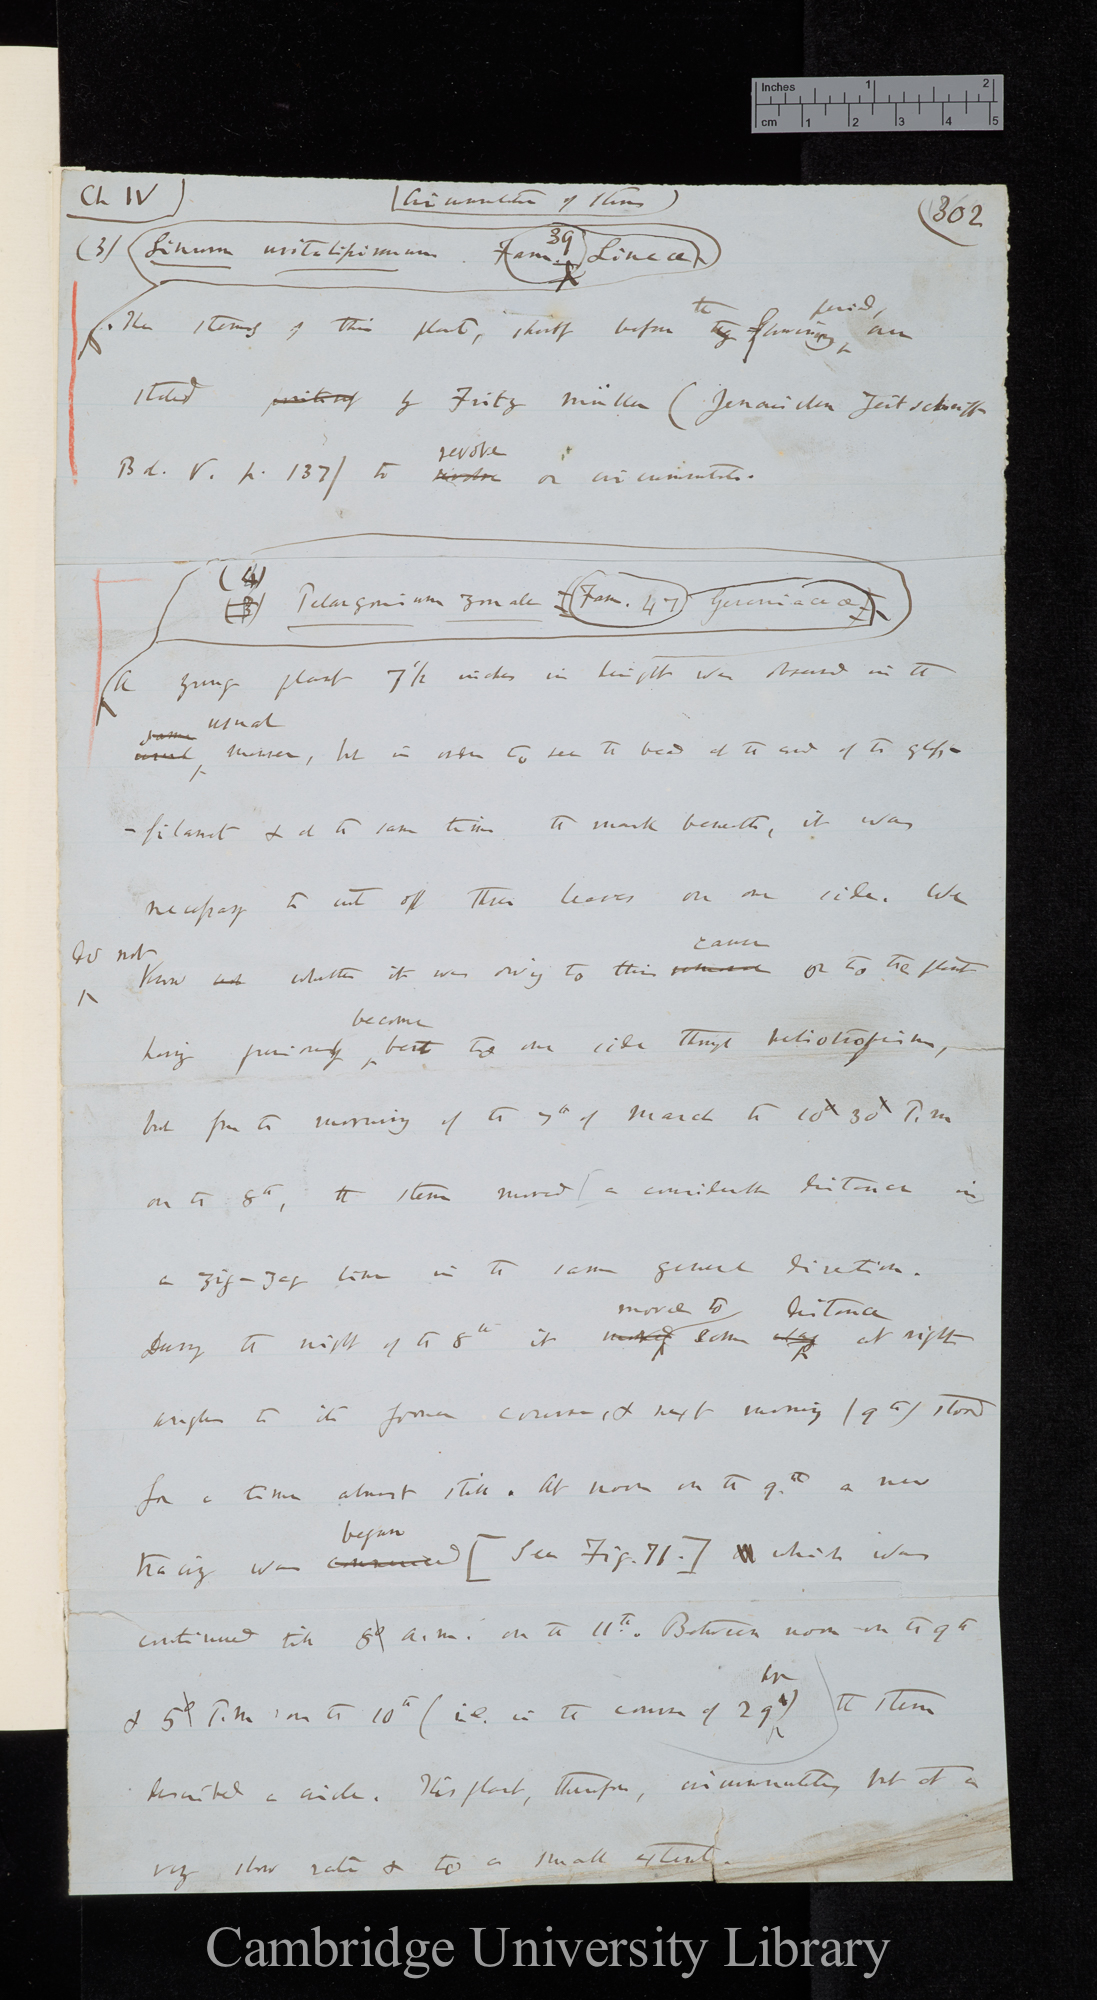 Inches 1 2
cm 1 2 3 4 5
Ch IV) (Circumnutation of stems) (302
(3) Linum usitatissimum. Fam. 39 Lineæ
The stems of this plant, shortly before the flowering period, are
stated by Fritz Müller (Jenaischen Zeitschrift
Bd. V. p. 137) to revolve revolve or circumnutate.
(4)
(3) Pelargonium zonale (Fam. 47) Geraniaceæ
A young plant 7 1/2 inches in height was observed in the
same usual
usual manner, but in order to see the bead at the end of the glass-
-filament & at the same time the mark beneath, it was
necessary to cut off three leaves on one side. We
do not cause
know not whether it was owing to this or to the plant
become
having previously bent to one side through heliotropism,
but from the morning of the 7th of March to 10 30 P.m
on the 8th, the stem moved a considerable distance in
a zig-zag line in the same general direction.
moved to distance
During the night of the 8th it moved some way at right
angles to its former course, & next morning (9th) stood
for a time almost still. At noon on the 9th a new
began
tracing was commenced [See Fig. 71.] which was
continued till 8 a.m. on the 11th. Between noon on the 9th
hr
& 5 P.m on the 10th (i.e. in the course of 29h) the stem
described a circle. This plant, therefore, circumnutates, but at a
very slow rate & to a small extent.
Cambridge University Library